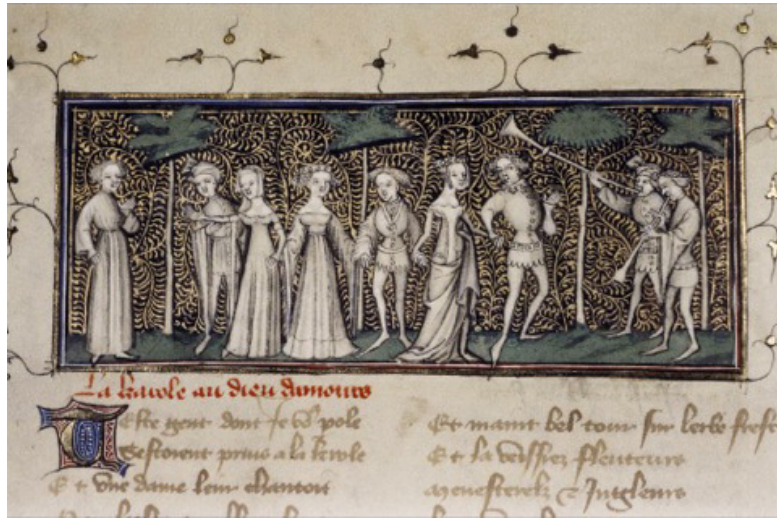 La karole au dieu damours
Ceste gent dont je vos pole
Sestoient pris a la kerole
Et une dame leur chantoit
Et maint bel tour sur lerbe fresc
Et la veissiez fleuteurs
Menesterelz et Jugleurs